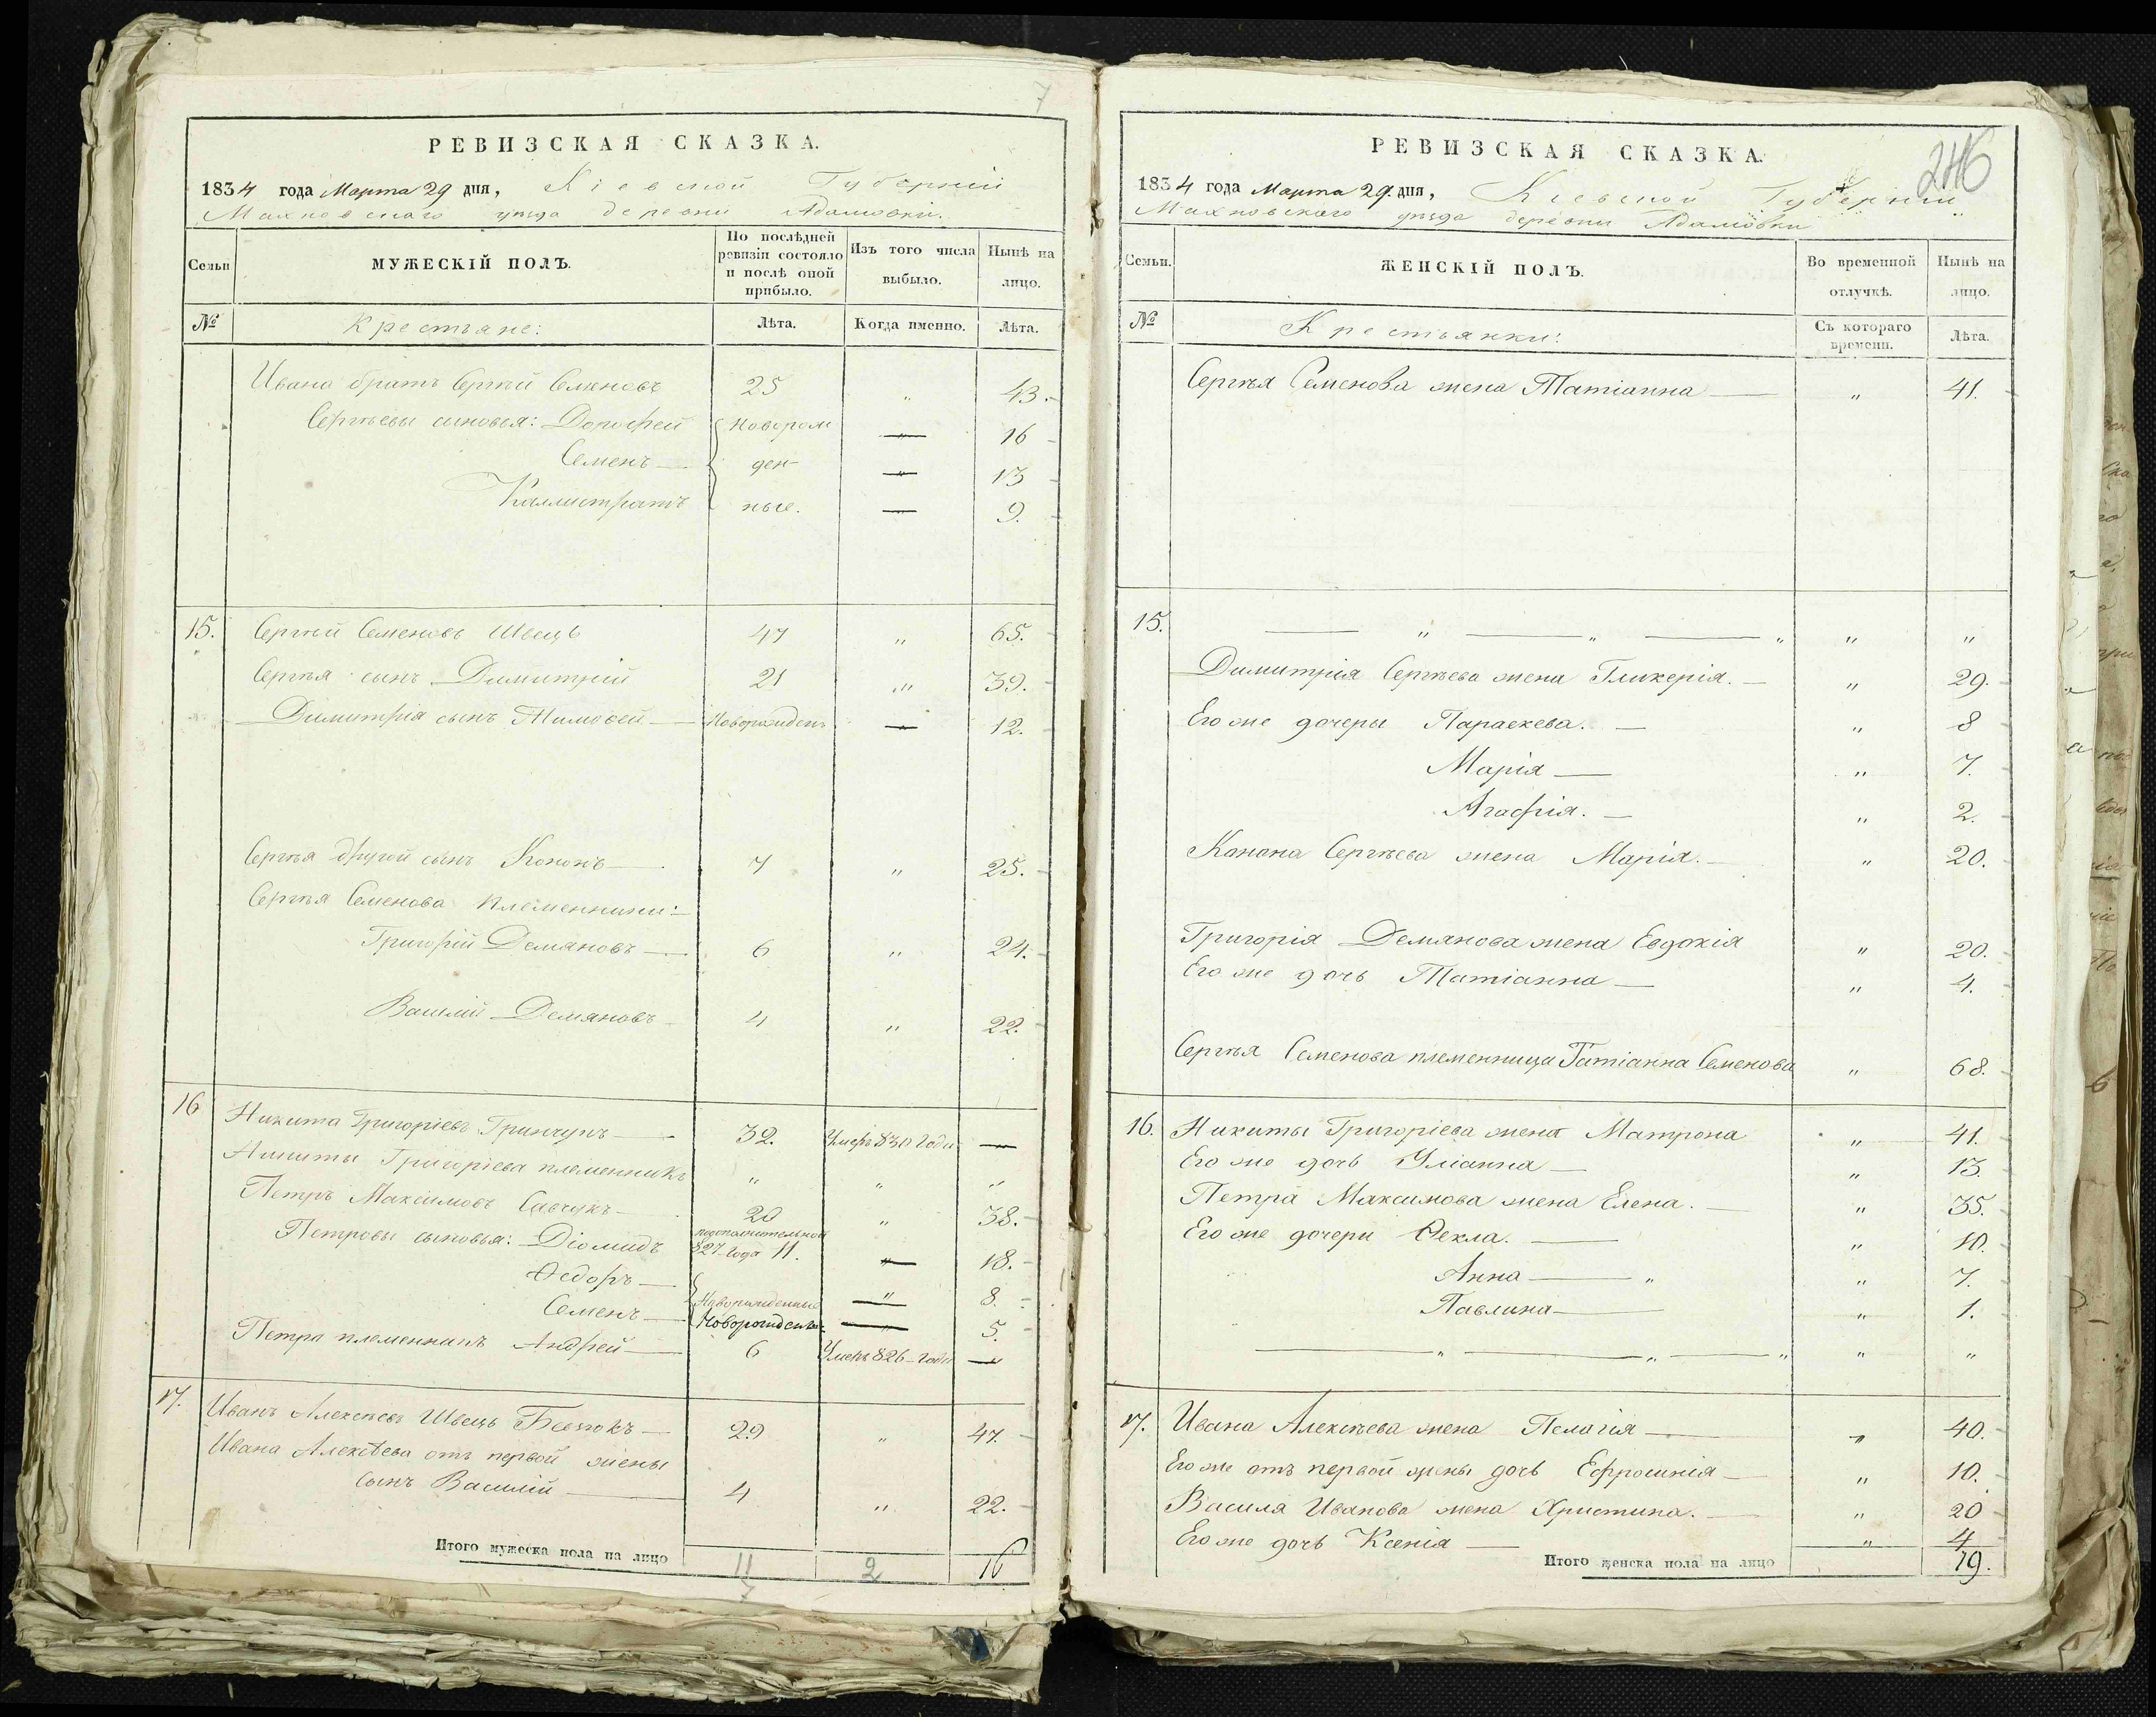 7
РЕВИЗСКАЯ СКАЗКА.
1834 года Марта 29 дня, Кіевской Губерніи
Махновскаго уезда деревни Адамовки.
Семьи
МУЖЕСКІЙ ПОЛЪ.
По послѣдней ревизіи состояло и послѣ оной прибыло.
Изъ того числа выбыло.
Нынѣ на лицо.
№ Крестьяне: Лѣта. Когда именно. Лѣта.
Ивана братъ Сергѣй Семеновъ 25 " 43.
Сергѣевы сыновья: Дорофей Новорож — 16
Семенъ — ден- — 13
Каллистратъ ные. — 9.
15. Сергѣй Семеновъ Швецъ 47 " 65.
Сергѣя сынъ Димитрій 21 " 39.
Димитрія сынъ Тимофей — Новорожденъ — 12.
Сергѣя другой сынъ Кононъ — 7 " 25.
Сергѣя Семенова племенники:
Григорій Демяновъ — 6 " 24.
Василій Демяновъ 4 " 22.
16 Никита Григоріевъ Гринчукъ — 32. Умеръ 830 года —
Никиты Григоріева племенникъ " " "
Петръ Максимовъ Савчукъ — 20 " 38.
Петровы сыновья: Діомидъ 827 года 11. — 18.
Ѳедоръ — Новорожденные — 8.
Семенъ — Новорожденъ — 5.
Петра племенникъ Андрей — 6 Умеръ 826 года —
17. Иванъ Алексѣевъ Швецъ — 29 " 47.
Ивана Алексѣева отъ первой жены
сынъ Василій — 4 " 22.
Итого мужеска пола на лицо 11 2 16
7
246
РЕВИЗСКАЯ СКАЗКА.
1834 года Марта 29. дня, Кіевской Губерніи
Махновскаго уезда деревни Адамовки
Семьи.
ЖЕНСКІЙ ПОЛЪ.
Во временной отлучкѣ.
Нынѣ на лицо.
№ Крестьянки: Съ котораго времени. Лѣта.
Сергѣя Семенова жена Татіанна — " 41.
15. — " — " — " " "
Димитрія Сергѣева жена Гликерія. — " 29.
Его же дочеры Параскева. — " 8
Марія — " 7.
Агафія. — " 2.
Канана Сергѣева жена Марія. — " 20.
Григорія Демянова жена Евдокія " 20.
Его же дочь Татіанна — " 4.
Сергѣя Семенова племенница Татіанна Семенова " 68.
16. Никиты Григоріева жена Матрона " 41.
Его же дочь Уліанна — " 13.
Петра Максимова жена Елена. — " 35.
Его же дочери Ѳекла. — " 10.
Анна — " " 7.
Павлина — " 1.
— " — " — " " "
17. Ивана Алексѣева жена Пелагія — " 40.
Его же отъ первой жены дочь Ефросинія — " 10.
Василя Иванова жена Христина. — " 20
Его же дочь Ксенія — " 4
Итого женска пола на лицо 19.